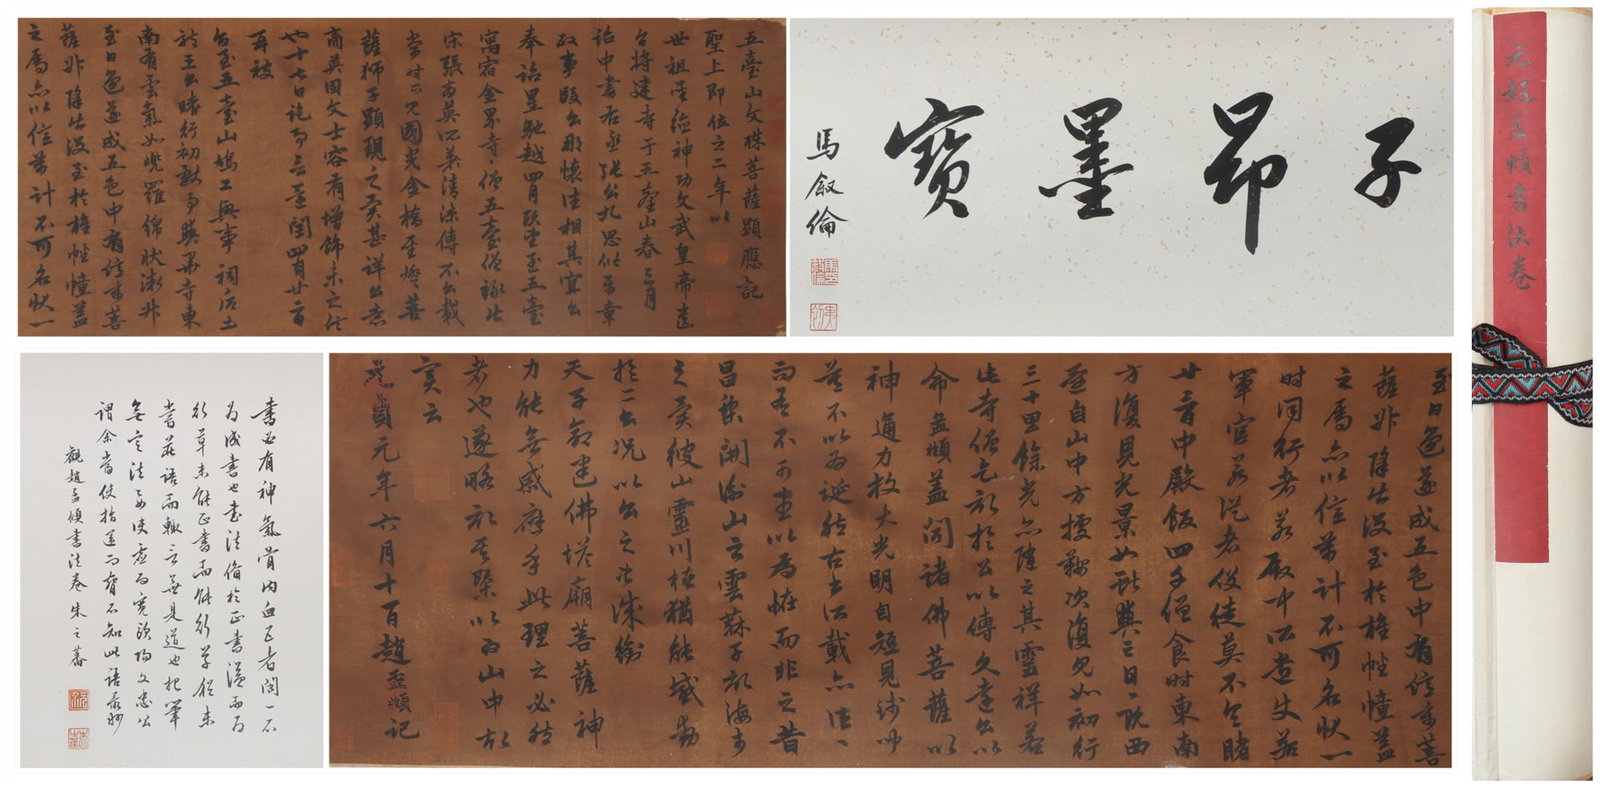 子昂墨寶
馬叙倫
元趙孟頫書法卷
五臺山文殊菩薩顯應記
聖上即位之二年以
世祖聖德神功文武皇帝遺
旨將建寺于五臺山春三月
詔中書右丞張公九思 章
政事段公那懷往相其宜公
奉詔星馳越四月既望至五臺
寓宿金界寺僧五臺僧 此
宋張商英所 清涼傳 載
常時所見圓光金橋聖燈菩
薩獅子顯現之異甚詳公意
商英固文士容有增飾未之信
也十七日訖事言還閏四月廿二日
再被
旨至五臺山鳩工興事祠后土
於 行初獻 與畢寺東
南有雲氣如兜羅綿狀漸升
至日邊遂成五色中有億萬菩
薩升降出沒至於旌幢幢蓋
之屬亦以億萬計不可名狀一
至日邊遂成五色中有億萬菩
薩升降出沒至於旌幢幢蓋
之屬亦以億萬計不可名狀一
時同行者若 所差史若
軍官若從者僕徒莫不仝睹
廿二日中殿飯四千僧食時東南
方復見光景如 興之日 西
屋自山中方據鞍次復見如初行
三十里餘光亦隨之其靈祥若
此寺僧乞記於公以傳久遠公以
命孟頫蓋聞諸佛菩薩以
神通力放大光明自短見淺聞
莫不以為誕然古書所載亦往一
而有不可盡以為怪而非之昔
昌黎開衡山之雲蘇子記海市
之異彼山靈川怪猶能感動
於二公況以公之忠誠銜
天子命建佛塔廟菩薩神
力能無感應乎此理之必然
者也遂略記其槩以為山中故
實云
元貞元年六月十一日趙孟頫記
書必有神氣骨肉血五者闕一不
為成書也書法備於正書溢而為
行草未能正書而能行草猶未
嘗莊語而輒言無是道也把筆
無定法要使虛而寬歐陽文忠公
謂余當使指運而臂不知此語最妙
觀趙孟頫書法卷朱之蕃